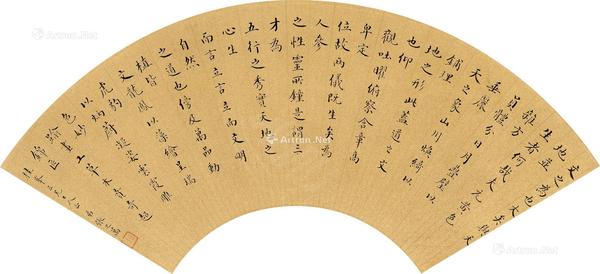 文之為也大矣與天
地並
生者何哉夫元黃色
雜方
員體分日月疊璧以
垂麗
天之象山川煥綺以
鋪理
地之形此蓋道之文
也仰
觀吐曜俯察含章高
卑定
位故兩儀既生矣為
人參
之性靈所鍾是謂三
才為
五行之秀實天地之
心生
而言立言立而文明
自然
之道也傍及萬品動
植皆
文龍鳳以藻繪呈瑞
虎豹
以炳蔚凝姿雲霞雕
色踰
畫工草木賁奇超
錦匠
Artron.Net
Artron.Net
Artron.Net